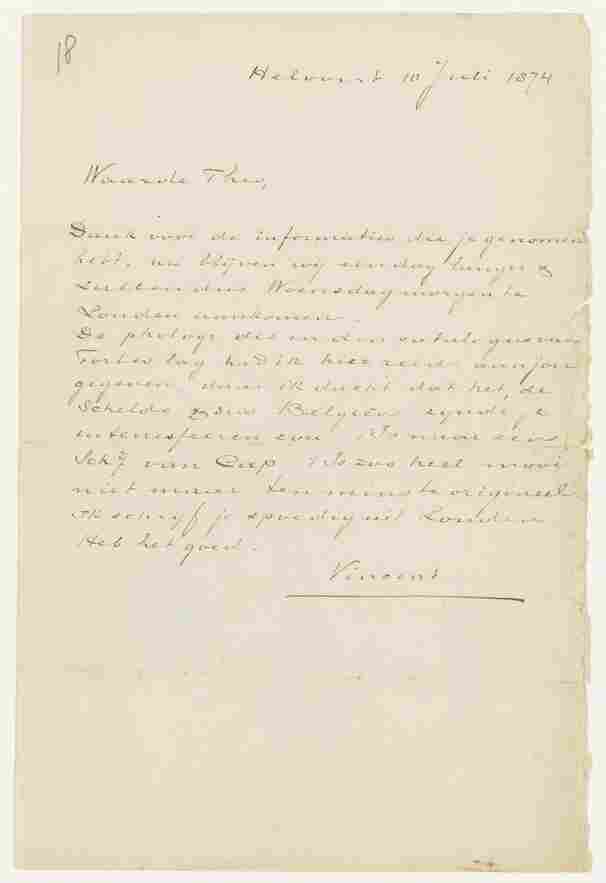 18
Helvoirt 10 Juli 1874
Waarde Theo,
Dank voor de informatien die je genomen
hebt, nu blijven wij een dag langer &
zullen dus Woensdagmorgen te
Londen aankomen.
De photogr die in den catalogus van
lag had ik hier reeds aan jou
gegeven, daar ik dacht dat het, de
Schelde & dus België zijnde, je
interesseeren zou. is naar een
schij van Cap is zoo heel mooi
niet maar ten minste origineel.
Ik schrijf je spoedig uit Londen
Heb het goed.
Vincent